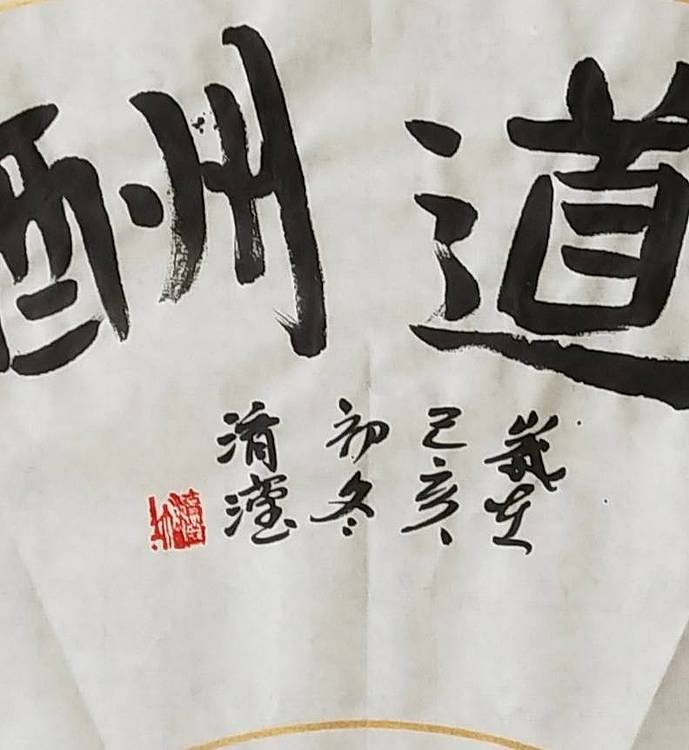 道酬
歲在
己亥
初冬
清